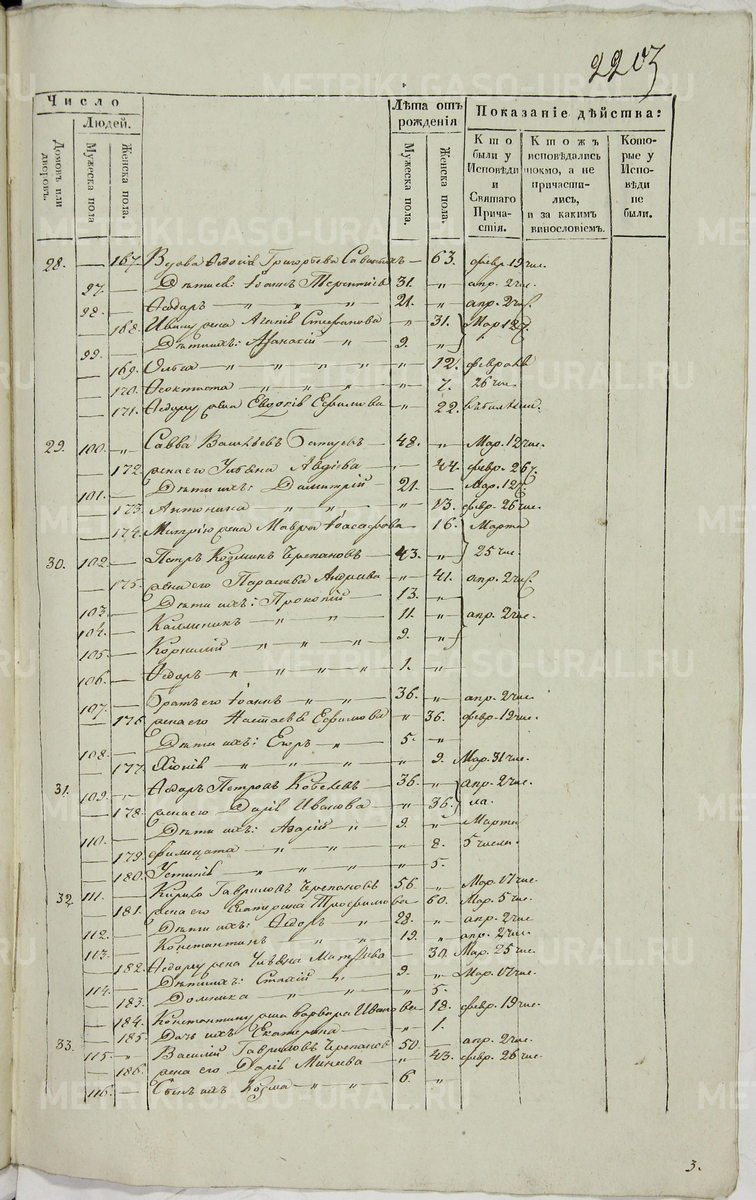 Число
Людей.
Домовъ или дворовъ.
Мужеска пола
Женска пола.
Лѣта отъ рожденія
Мужеска пола.
Женска пола.
Показаніе дѣйства:
Кто были у Исповѣди и Святаго Причастія.
Ктожъ исповѣдались токмо, а не причастились, и за какимъ винословіемъ.
Которые у Исповѣди не были.
28. — 167. Вдова Ѳедосія Григорьева — 63. февр. 19 чис.
27. — Дѣти ея: Іоанъ Терентіевъ 31. „ апр. 2 чис.
28. — Ѳедоръ „ „ „ 21. „ апр. 2 чис.
— 168. Ивану жена Агапія Стефанова „ 31. Мар. 12
29. — Дѣти ихъ: Афанасій „ 9. „
— 169. „ „ „ „ 12. февраля
— 170. Ѳеоктиста „ „ „ „ 7. 26 чис.
— 171. Ѳедору жена Евдокія Ефимова „ 22.
29. 100. „ Савва Васильевъ — 48. „ Мар. 12 чис.
— 172. жена его Ульяна Авдіева — 44. февр. 26
101. — Дѣти ихъ: Димитрій — 21. — Мар. 12
— 173. Антонина „ „ „ 13. февр. 26 чис.
— 174. Митрію жена Мавра — 16. Марта
30. 102. — Петръ Козминъ Черепановъ — 43. „ 25 чис.
— 175. жена его Парасковья Андреева „ 41. апр. 2 чис.
103. — Дѣти ихъ: Прокопій — 13. „
104. — Каллиникъ „ „ 11. „ апр. 2 чис.
105. — Корнилій „ „ „ 9. „
106. — Ѳедоръ „ „ „ „ 1. „
107. — Братъ его Іоанъ „ „ 36. „ апр. 2 чис.
— 176. жена его Настасья Ефимова „ 36. февр. 19 чис.
108. — Дѣти ихъ: Егоръ „ 5. „
— 177. Хіонія „ „ „ „ 9. Мар. 31 чис.
31. 109. „ Ѳедоръ Петровъ Кобелевъ 36. „ апр. 2 чис
— 178. жена его Дарія Иванова — „ 36. ла.
110. — Дѣти ихъ: Азарій „ 9. „ Марта
— 179. Филицата „ „ „ 8. 5 числа.
— 180. Устинія „ „ „ „ 5.
32. 111. — Кирило Гавриловъ Черепановъ 56. „ Мар. 17 чис.
— 181. жена его Екатерина Трофимова 60. Мар. 5 чис.
112. — Дѣти ихъ: Ѳедоръ „ 28. „ апр. 2 чис
113. — Константинъ „ „ 19. „ апр. 2 чис.
— 182. Ѳедору жена Ульяна — 30. Мар. 25 чис.
114. — Дѣти ихъ: Стахій „ 9. „ Мар. 17 чис.
— 183. Домника „ „ „ 5.
— 184. Константину жена Варвара Иванова 18. февр. 19 чис.
— 185. Дочь ихъ Екатерина — „ 1.
33. 115. „ Василій Гавриловъ Черепановъ 50. — апр. 2 чис.
— 186. жена его Дарія Минеева „ 43. февр. 26 чис.
116. — Сынъ ихъ Козма „ „ 6. „
3.
METRIKI.GASO-URAL.RU